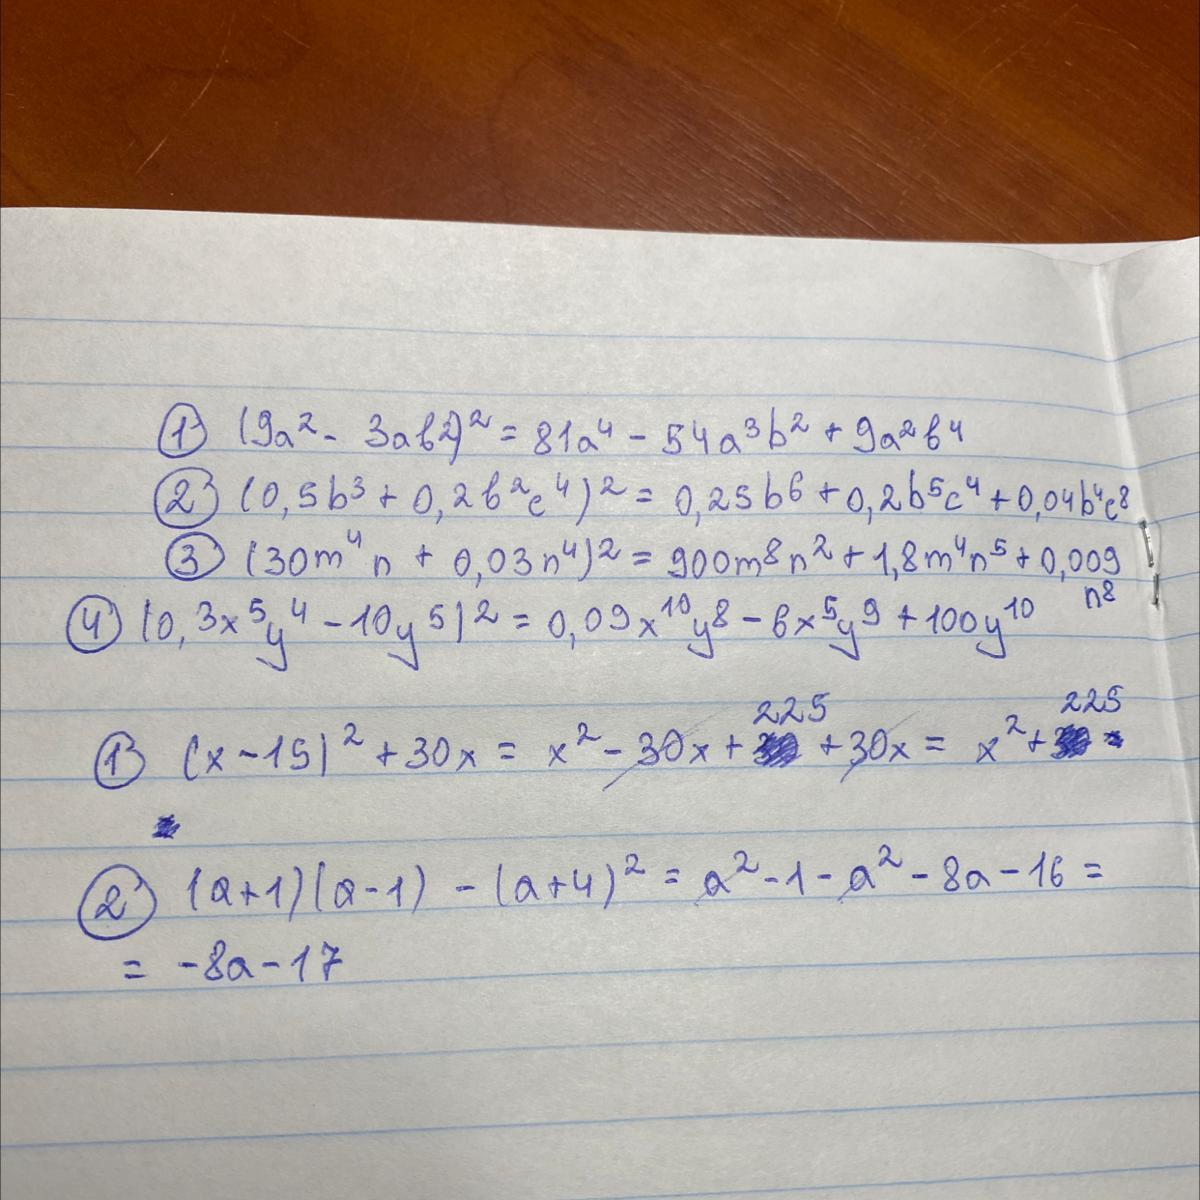 ① (9a² - 3ab²)² = 81a⁴ - 54a³b² + 9a²b⁴
② (0,5b³ + 0,2b²c⁴)² = 0,25b⁶ + 0,2b⁵c⁴ + 0,04b⁴c⁸
③ (30m⁴n + 0,03n⁴)² = 900m⁸n² + 1,8m⁴n⁵ + 0,009
n⁸
④ (0,3x⁵y⁴ - 10y⁵)² = 0,09x¹⁰y⁸ - 6x⁵y⁹ + 100y¹⁰
① (x - 15)² + 30x = x² - 30x + 225 + 30x = x² + 225
② (a+1)(a-1) - (a+4)² = a² - 1 - a² - 8a - 16 =
= -8a - 17